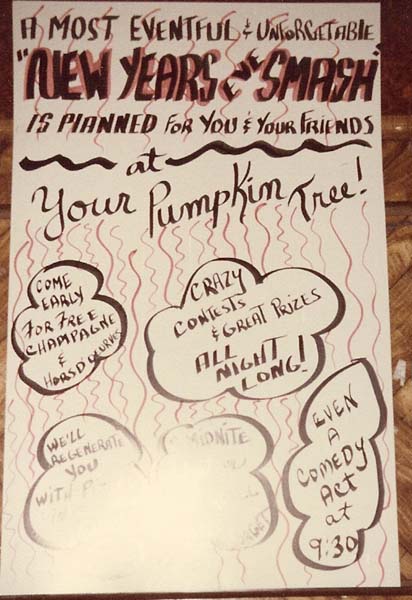 A MOST EVENTFUL & UNFORGETABLE
"NEW YEARS EVE SMASH"
IS PLANNED FOR YOU & YOUR FRIENDS
at
Your Pumpkin Tree!
COME
EARLY
FOR FREE
CHAMPAGNE
&
HORSD'OEURVES
CRAZY
CONTESTS
& GREAT PRIZES
ALL
NIGHT
LONG!
WE'LL
REGENERATE
YOU
WITH
EVEN
A
COMEDY
ACT
at
9:30